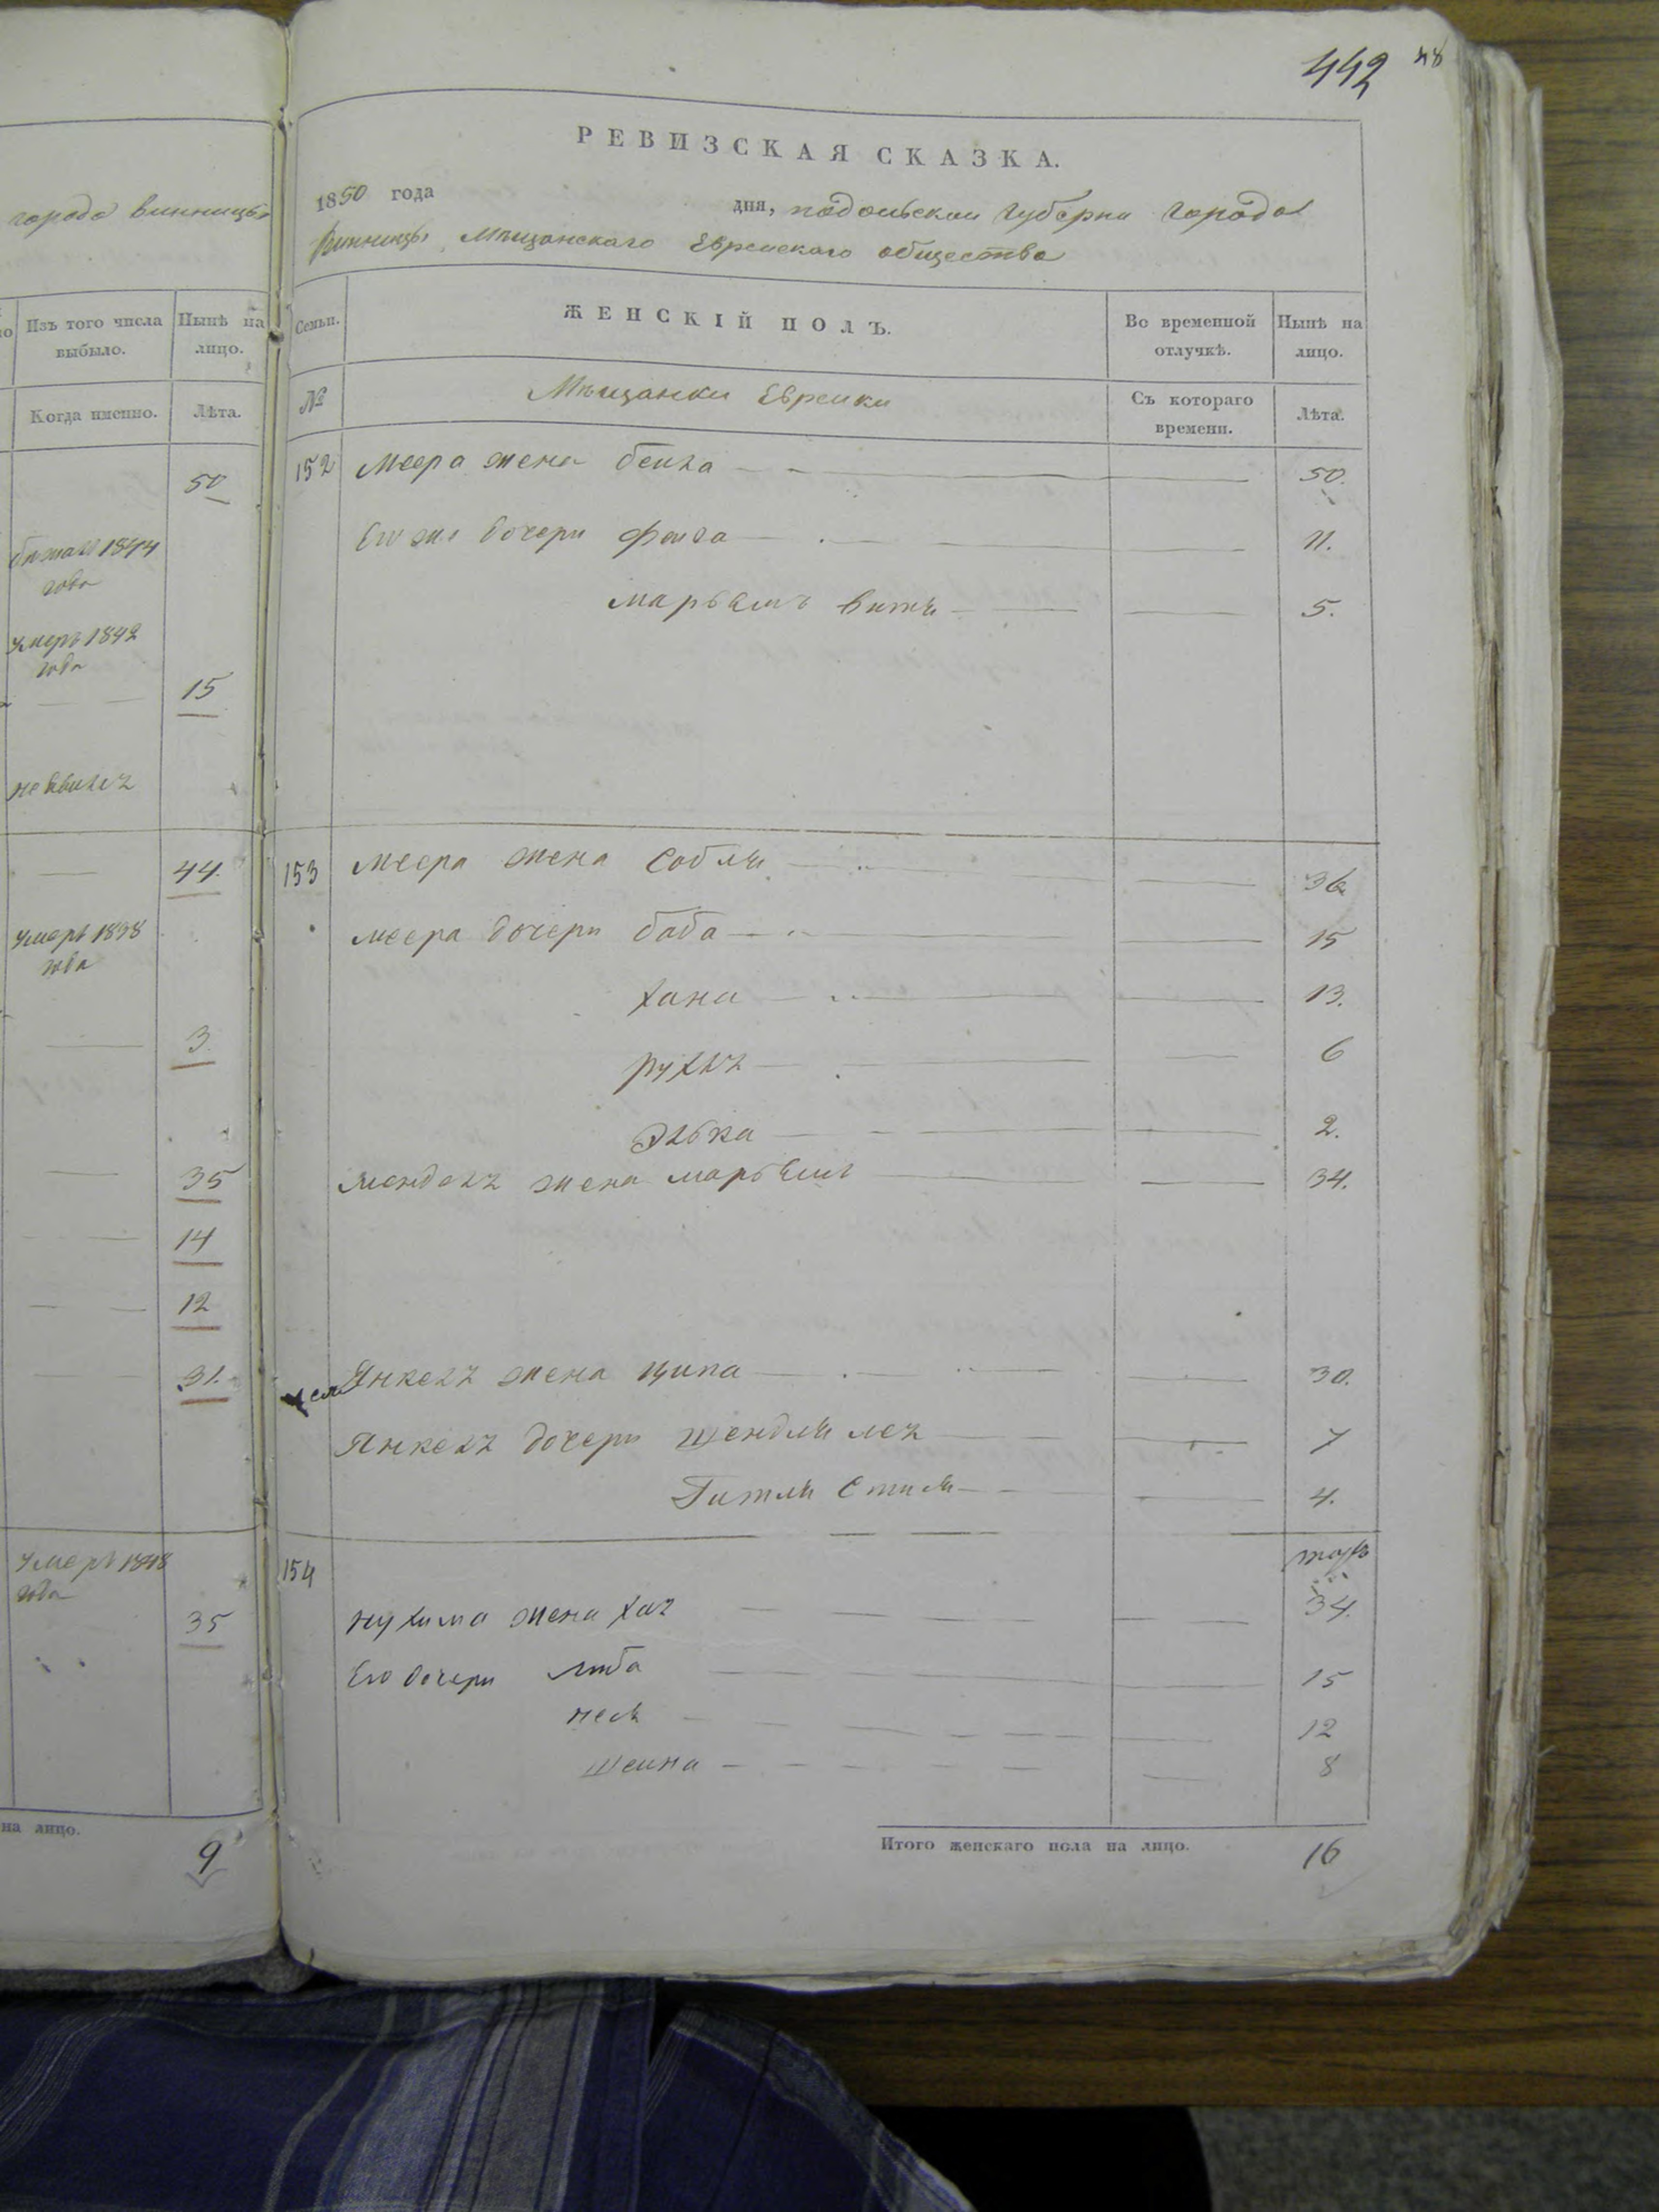 города винницы
Изъ того числа выбыло.
Нынѣ на лицо.
Когда именно.
Лѣта.
50
1844
года
умеръ 1842
года
15
44
умеръ 18
года
3
35
14
12
31.
умеръ 1848
года
35
на лицо.
9
442 48
РЕВИЗСКАЯ СКАЗКА.
1850 года дня, подольской губерни города
Винницы мѣщанскаго Еврейскаго общества
Семьи. ЖЕНСКІЙ ПОЛЪ. Во временной отлучкѣ. Нынѣ на лицо.
№ Мѣщанки Еврейки Съ котораго времени. Лѣта.
152 меера жена бейла 50.
Его же дочери фейга 11.
5.
153 меера жена собля 36
меера дочери баба 15
хана 13.
рухль 6
элька 2.
мендель жена 34.
Янкель жена ципа 30.
Янкель дочери шендля лея 7
Гитля 4.
154
нухима жена хая 34.
Его дочери люба 15
неся 12
шейна 8
Итого женскаго пола на лицо. 16